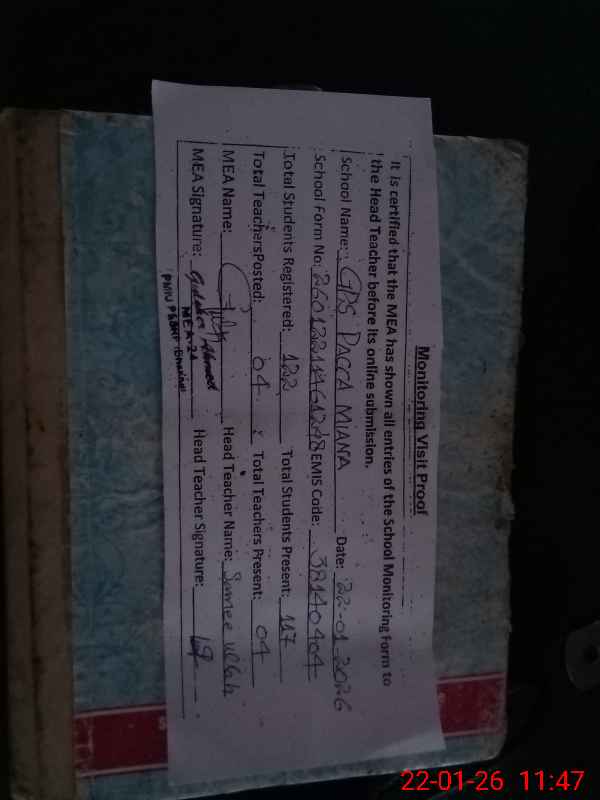 Monitoring Visit Proof
It is certified that the MEA has shown all entries of the School Monitoring Form to
the Head Teacher before its online submission.
School Name: GPS PACCA MIANA Date: 22-01-2026
School Form No: EMIS Code: 38140404
Total Students Registered: 122 Total Students Present: 117
Total TeachersPosted: 04 Total Teachers Present: 04
MEA Name: Head Teacher Name: Samee ullah
MEA Signature: Ahmad Head Teacher Signature:
MEA-24
22-01-26 11:47